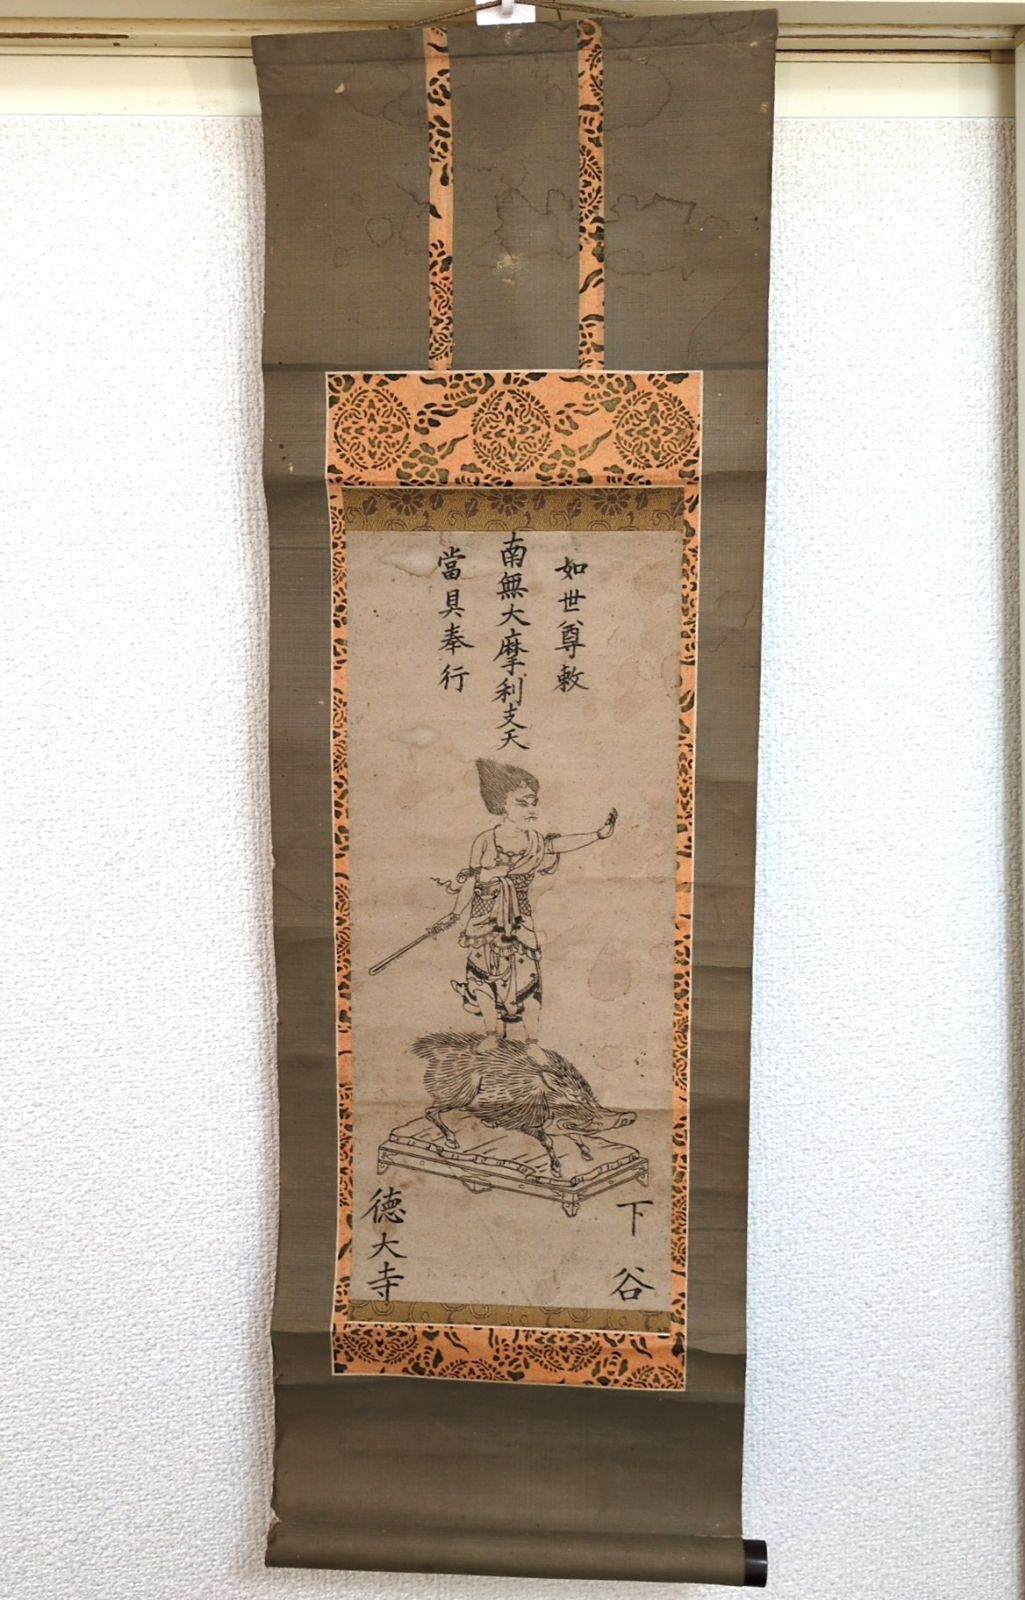 如世尊敕
南無大摩利支天
當具奉行
下谷
徳大寺